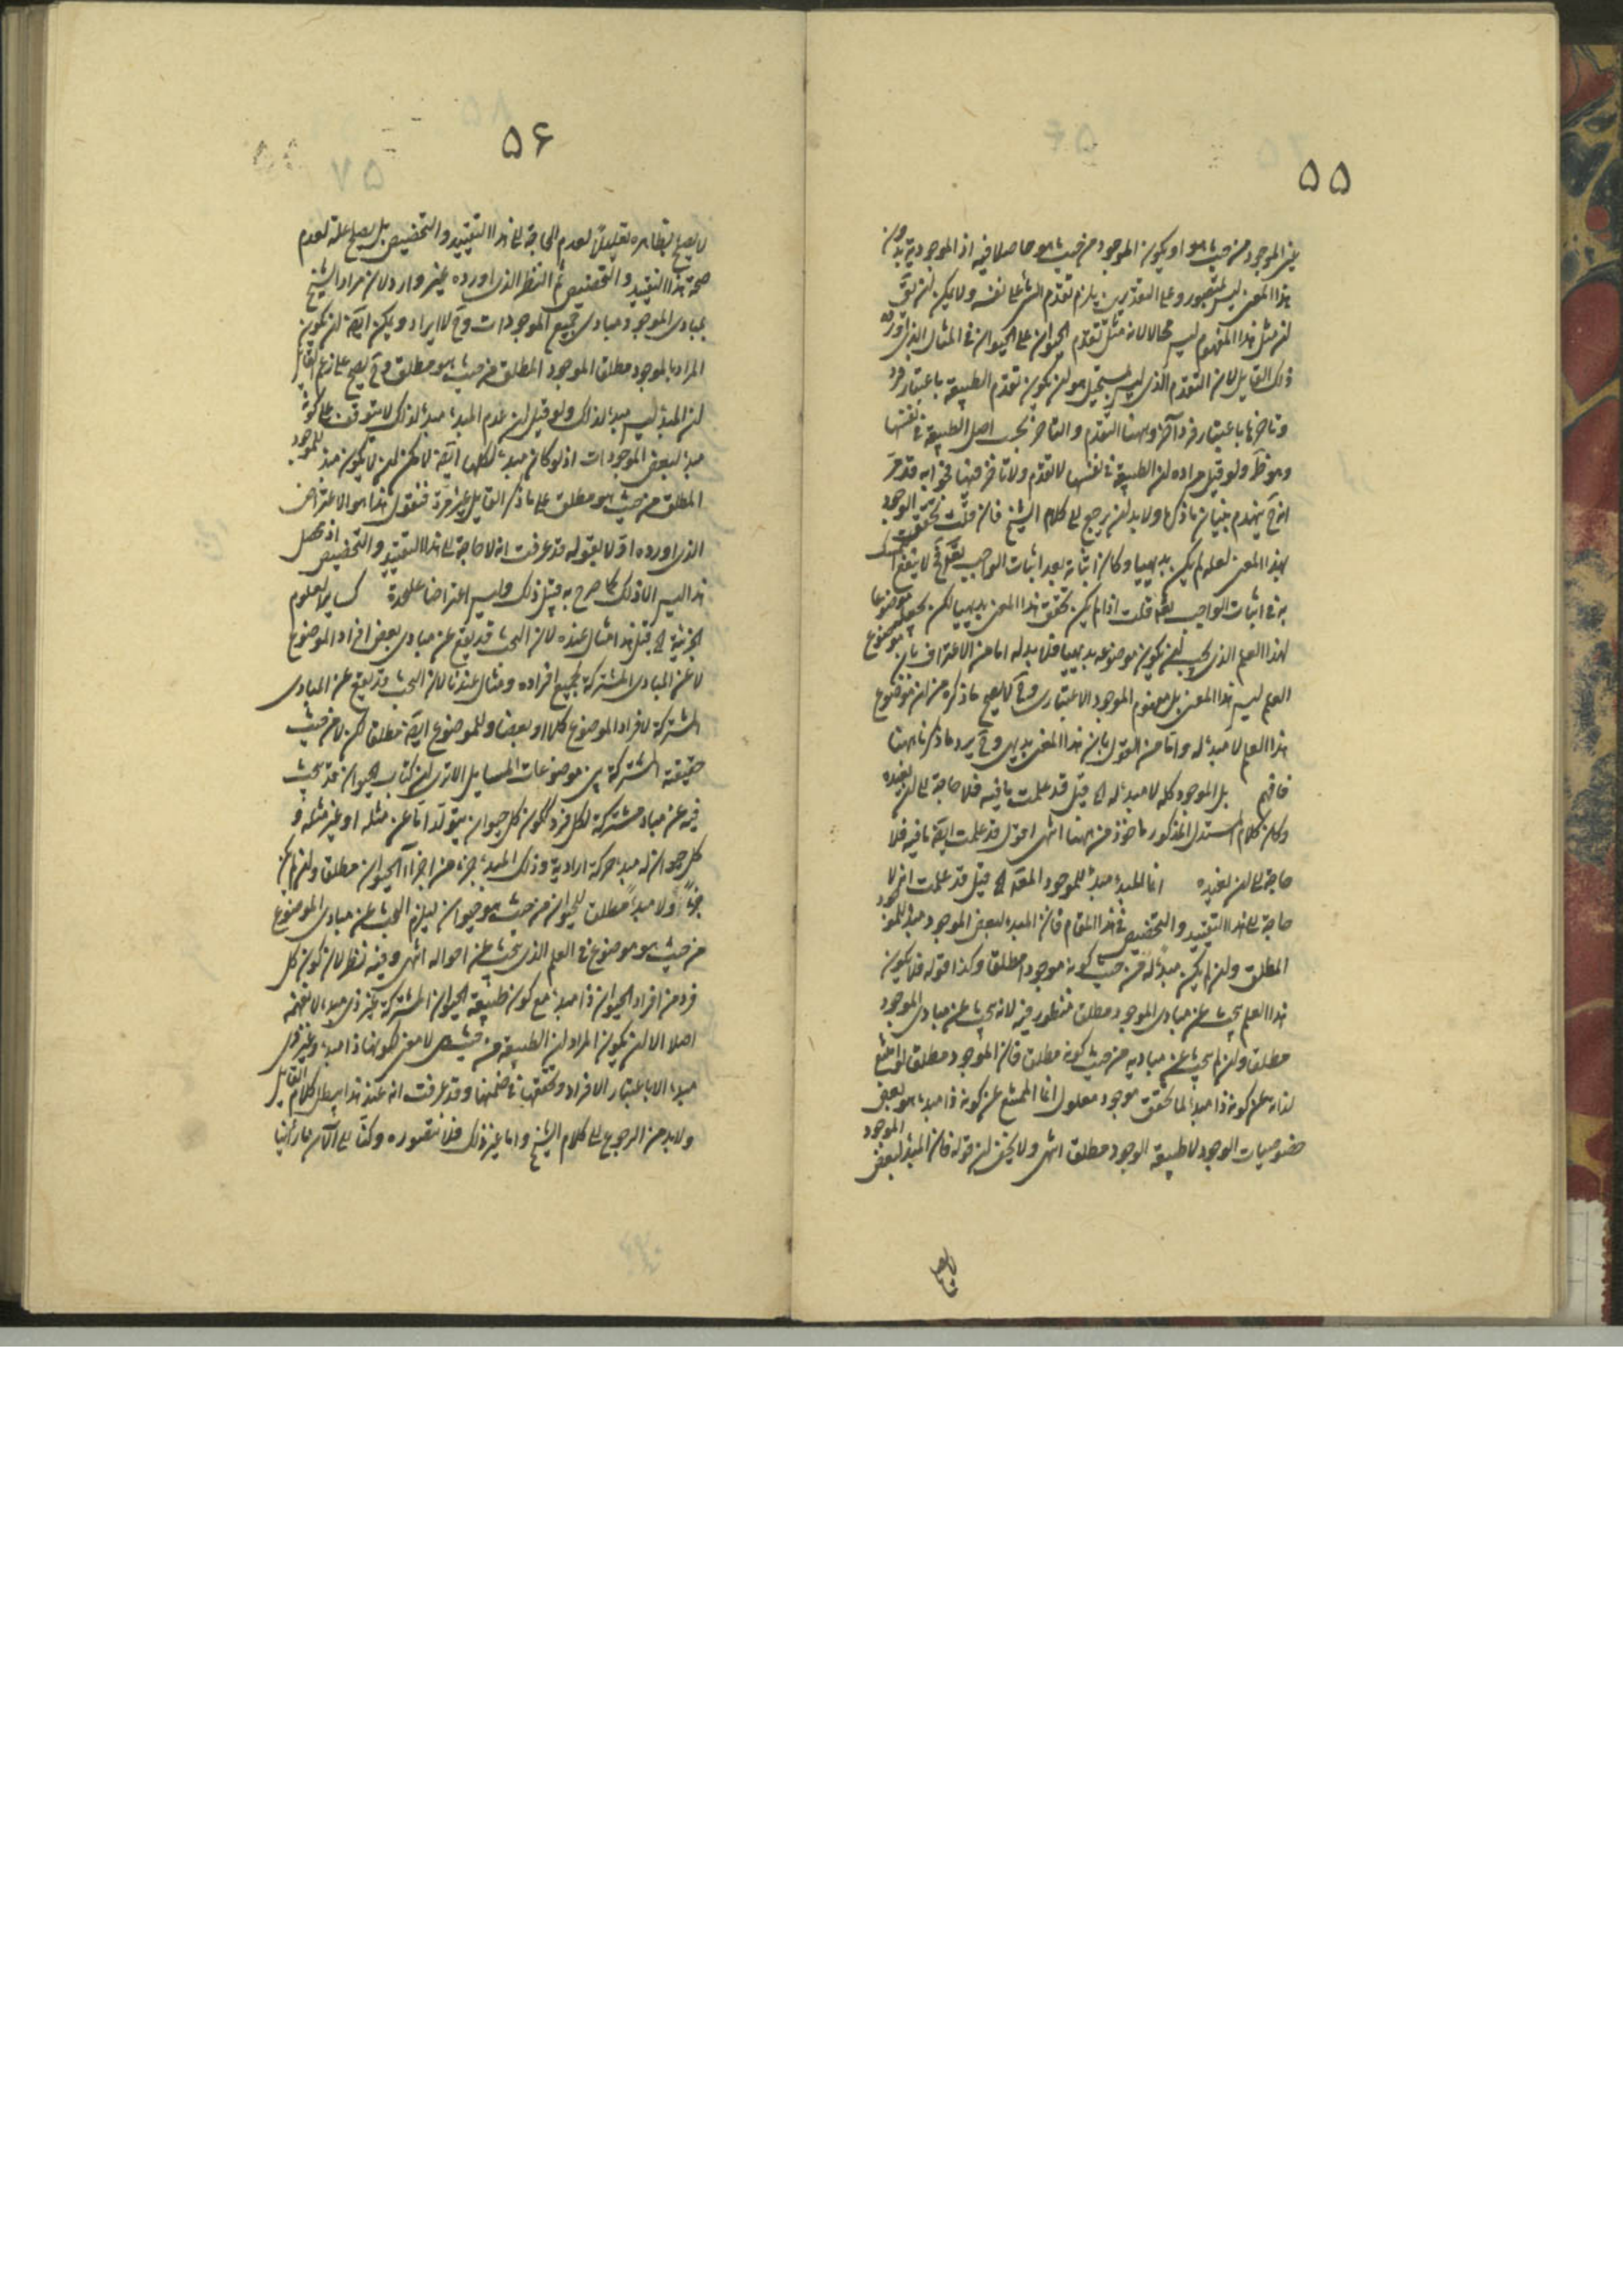 ٥٥
غير الموجود من حيث هو او يكون الموجود من حيث هو حاصلا فيه اذ الموجودية بدون
هذا المعنى ليس بمتصور وعلى التقديرين يلزم تقدم الشئ على نفسه ولا يمكن ان يق
ان مثل هذا المفهوم ليس محالا لانه مثل تقدم الحيوان على الحيوان في المثال الذي اورده
ذلك القايل لان التقدم الذي ليس بمستحيل هو ان يكون تقدم الطبيعة باعتبار فرد
وتاخرها باعتبار فرد آخر وههنا التقدم والتاخر بحسب اصل الطبيعة في نفسها
وهو ظ ولو قيل مراده ان الطبيعة في نفسها لا تقدم ولا تاخر فيها فجوابه قد مر
انه ح ينهدم بنيان ما ذكره ولا بد ان يرجع الى كلام الشيخ فان قلت تحقق الموجود
بهذا المعنى لعله لم يكن بديهيا وكان اثباته بعد اثبات الواجب تع فح لا ينفع
به في اثبات الواجب تع قلت اذا لم يكن تحقق هذا المعنى بديهيا لم يكن يجعل موضوعا
لهذا العلم الذي يجب ان يكون موضوعه بديهيا فلا بد له اما من الاعتراف بان موضوع
العلم ليس هذا المعنى بل مفهوم الموجود الاعتباري وح لا يصح ما ذكره من ان موضوع
هذا العلم لا مبدء له واما من القول بان هذا المعنى بديهي وح يرد ما ذكرنا ههنا
فافهم بل الموجود كله لا مبدء له الخ قيل قد علمت ما فيه فلا حاجة الى ان نعيده
وكان كلام المستدل المذكور ماخوذ من ههنا انتهى اقول قد علمت ايضا ما فيه فلا
حاجة الى ان نعيده انما المبدء مبدء للموجود المعلول الخ قيل قد علمت انه لا
حاجة الى هذا التقييد والتخصيص في هذا المقام فان المبدء لبعض الموجود مبدء للموجود
المطلق وان لم يكن مبدء له من حيث كونه موجودا مطلقا وكذا قوله فلا يكون
هذا العلم يبحث عن مبادى الموجود مطلقا منظور فيه لانه يبحث عن مبادى الموجود
مطلقا وان لم يبحث عن مباديه من حيث كونه مطلقا فان الموجود مطلقا لو امتنع
لذاته عن كونه ذا مبدء لما تحقق موجود معلول انما الممتنع عن كونه ذا مبدء هو بعض
خصوصيات الوجود لا طبيعة الوجود مطلقا انتهى ولا يخفى ان قوله فان المبدء لبعض الموجود
٥۶
لا يصلح بظاهره تعليلا لعدم الحاجة الى هذا التقييد والتخصيص بل يصلح علة لعدم
صحة هذا التقييد والتخصيص ثم النظر الذي اورده غير وارد لان مراد الشيخ
بمبادى الموجود مبادى جميع الموجودات وح لا ايراد ويمكن ايضا ان يكون
المراد بالموجود مطلقا الموجود المطلق من حيث هو مطلق وح يصح على زعم القايل
ان المبدء ليس مبدء لذاك ولو قيل ان عدم المبدء مبدء لذاك لا يتوقف على كونه
مبدء لبعض الموجودات اذ لو كان مبدء لكلها ايضا لامكن ان لا يكون مبدء للموجود
المطلق من حيث هو مطلق على ما ذكر القايل غير مرة فنقول هذا هو الاعتراض
الذي اورده اولا بقوله قد عرفت انه لا حاجة الى هذا التقييد والتخصيص اذ محصل
هذا ليس الا ذلك كما صرح به قبل ذلك وليس اعتراضا على حدة كساير العلوم
الجزئية الخ قيل هذا مثال عنده لان البحث قد يقع عن مبادى بعض افراد الموضوع
لا عن المبادى المشتركة لجميع افراده ومثال عندنا لان البحث قد يقع عن المبادى
المشتركة لافراد الموضوع كلا او بعضا وللموضوع ايضا مطلقا لكن لا من حيث
حقيقته المشتركة بين موضوعات المسايل الا ترى ان كتاب الحيوان قد يبحث
فيه عن مباد مشتركة لكل فرد ككون كل حيوان يتولد اما عن مثله او غير مثله و
كل حيوان له مبدء حركة ارادية وذلك المبدء جزء من اجزاء الحيوان مطلقا وان لم يكن
جزءا ولا مبدء مطلقا للحيوان من حيث هو حيوان ليلزم البحث عن مبادى الموضوع
من حيث هو موضوع في العلم الذي يبحث عن احواله انتهى وفيه نظر لان كون كل
فرد من افراد الحيوان ذا مبدء مع كون طبيعة الحيوان المشتركة غير ذي مبدء لا نفهمه
اصلا الا ان يكون المراد ان الطبيعة من حيث هي لا معنى لكونها ذا مبدء وغير ذي
مبدء الا باعتبار الافراد وتحققها في ضمنها وقد عرفت انه عند هذا يبطل كلام القايل
ولا بد من الرجوع الى كلام الشيخ واما غير ذلك فلا نتصوره وكنا الى الآن ما رأينا